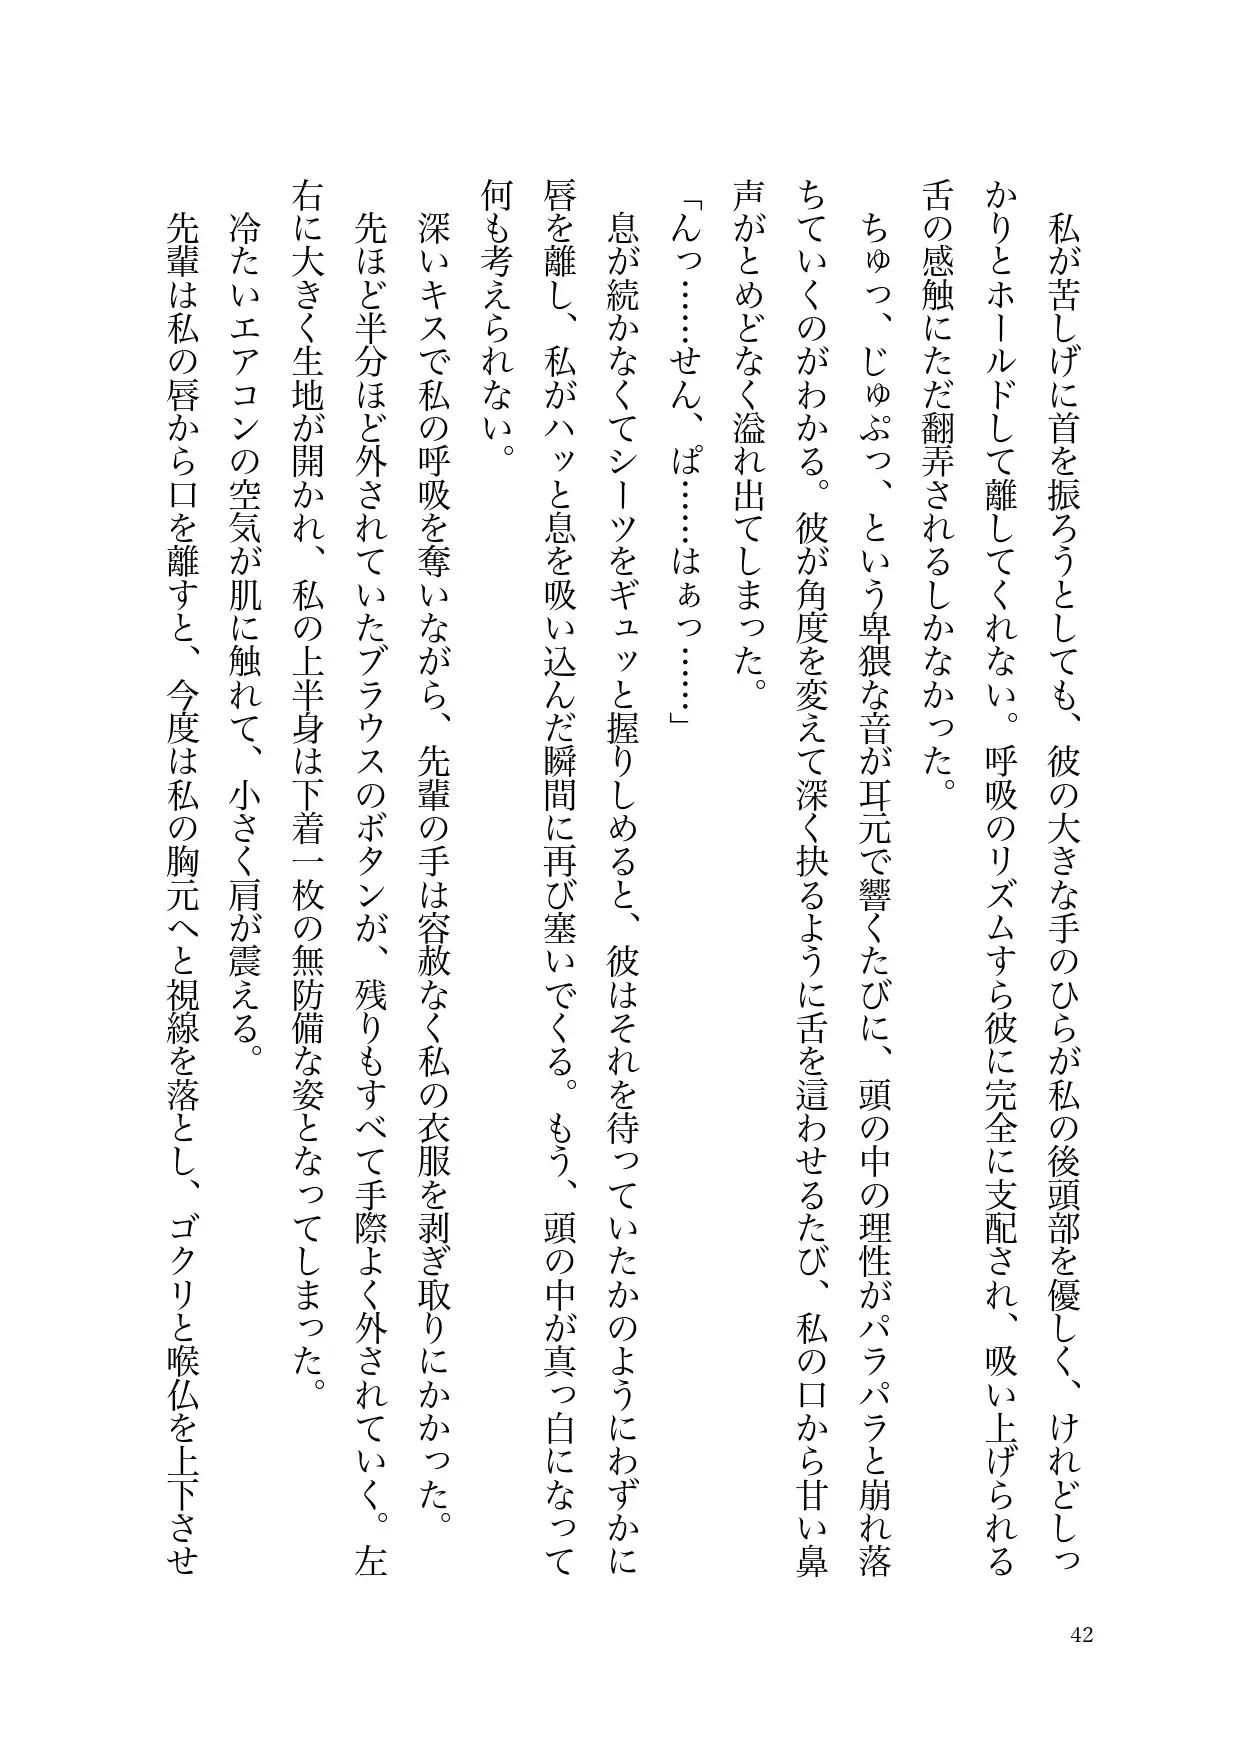 私が苦しげに首を振ろうとしても、彼の大きな手のひらが私の後頭部を優しく、けれどしっ
かりとホールドして離してくれない。呼吸のリズムすら彼に完全に支配され、吸い上げられる
舌の感触にただ翻弄されるしかなかった。
ちゅっ、じゅぷっ、という卑猥な音が耳元で響くたびに、頭の中の理性がパラパラと崩れ落
ちていくのがわかる。彼が角度を変えて深く抉るように舌を這わせるたび、私の口から甘い鼻
声がとめどなく溢れ出てしまった。
「んっ……せん、ぱ……はぁっ……」
息が続かなくてシーツをギュッと握りしめると、彼はそれを待っていたかのようにわずかに
唇を離し、私がハッと息を吸い込んだ瞬間に再び塞いでくる。もう、頭の中が真っ白になって
何も考えられない。
深いキスで私の呼吸を奪いながら、先輩の手は容赦なく私の衣服を剥ぎ取りにかかった。
先ほど半分ほど外されていたブラウスのボタンが、残りもすべて手際よく外されていく。左
右に大きく生地が開かれ、私の上半身は下着一枚の無防備な姿となってしまった。
冷たいエアコンの空気が肌に触れて、小さく肩が震える。
先輩は私の唇から口を離すと、今度は私の胸元へと視線を落とし、ゴクリと喉仏を上下させ
42